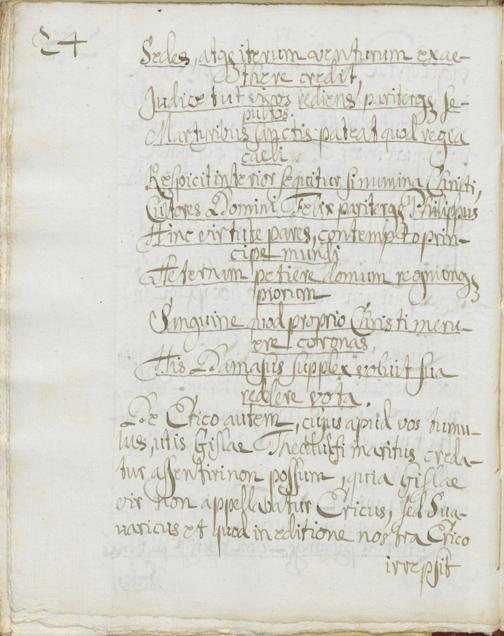 24
Sedes, atque iterum venturum ex ae-
there credit,
Judicet ut vivos rediens, pariterque se-
pultos.
Martyribus sanctis pateat quod regia
caeli
Respicit interior sequitur si numina Christi,
Cultores Domini Felix pariterque Philippus
Hinc virtute pares, contempto prin-
cipe mundi
Aeternam petiere domum regnaque
piorum
Sanguine quod proprio Christi meru-
ere coronas
His Damasus supplex voluit sua
reddere vota.
De Erico autem, cujus apud vos tumu-
lus, ut is Gislae maritus creda-
tur assentiri non possum, quia Gislae
vir non appellabatur Ericus, sed Sua-
varicus et quod in editione nostra Erico
irrepsit